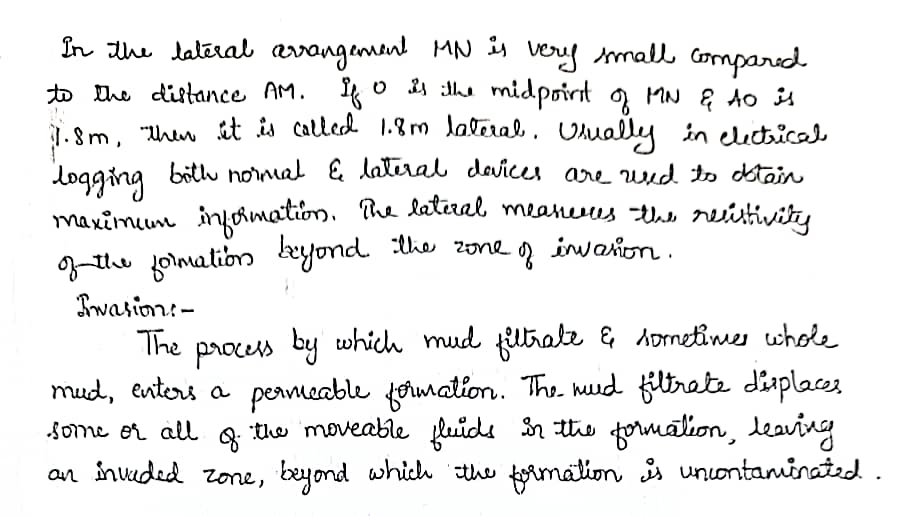 In the lateral arrangement MN is very small compared
to the distance AM. If O is the midpoint of MN & AO is
1.8m, then it is called 1.8m lateral. Usually in electrical
logging both normal & lateral devices are used to obtain
maximum information. The lateral measures the resistivity
of the formation beyond the zone of invasion.
Invasion:-
The process by which mud filtrate & sometimes whole
mud, enters a permeable formation. The mud filtrate displaces
some or all of the moveable fluids in the formation, leaving
an invaded zone, beyond which the formation is uncontaminated.